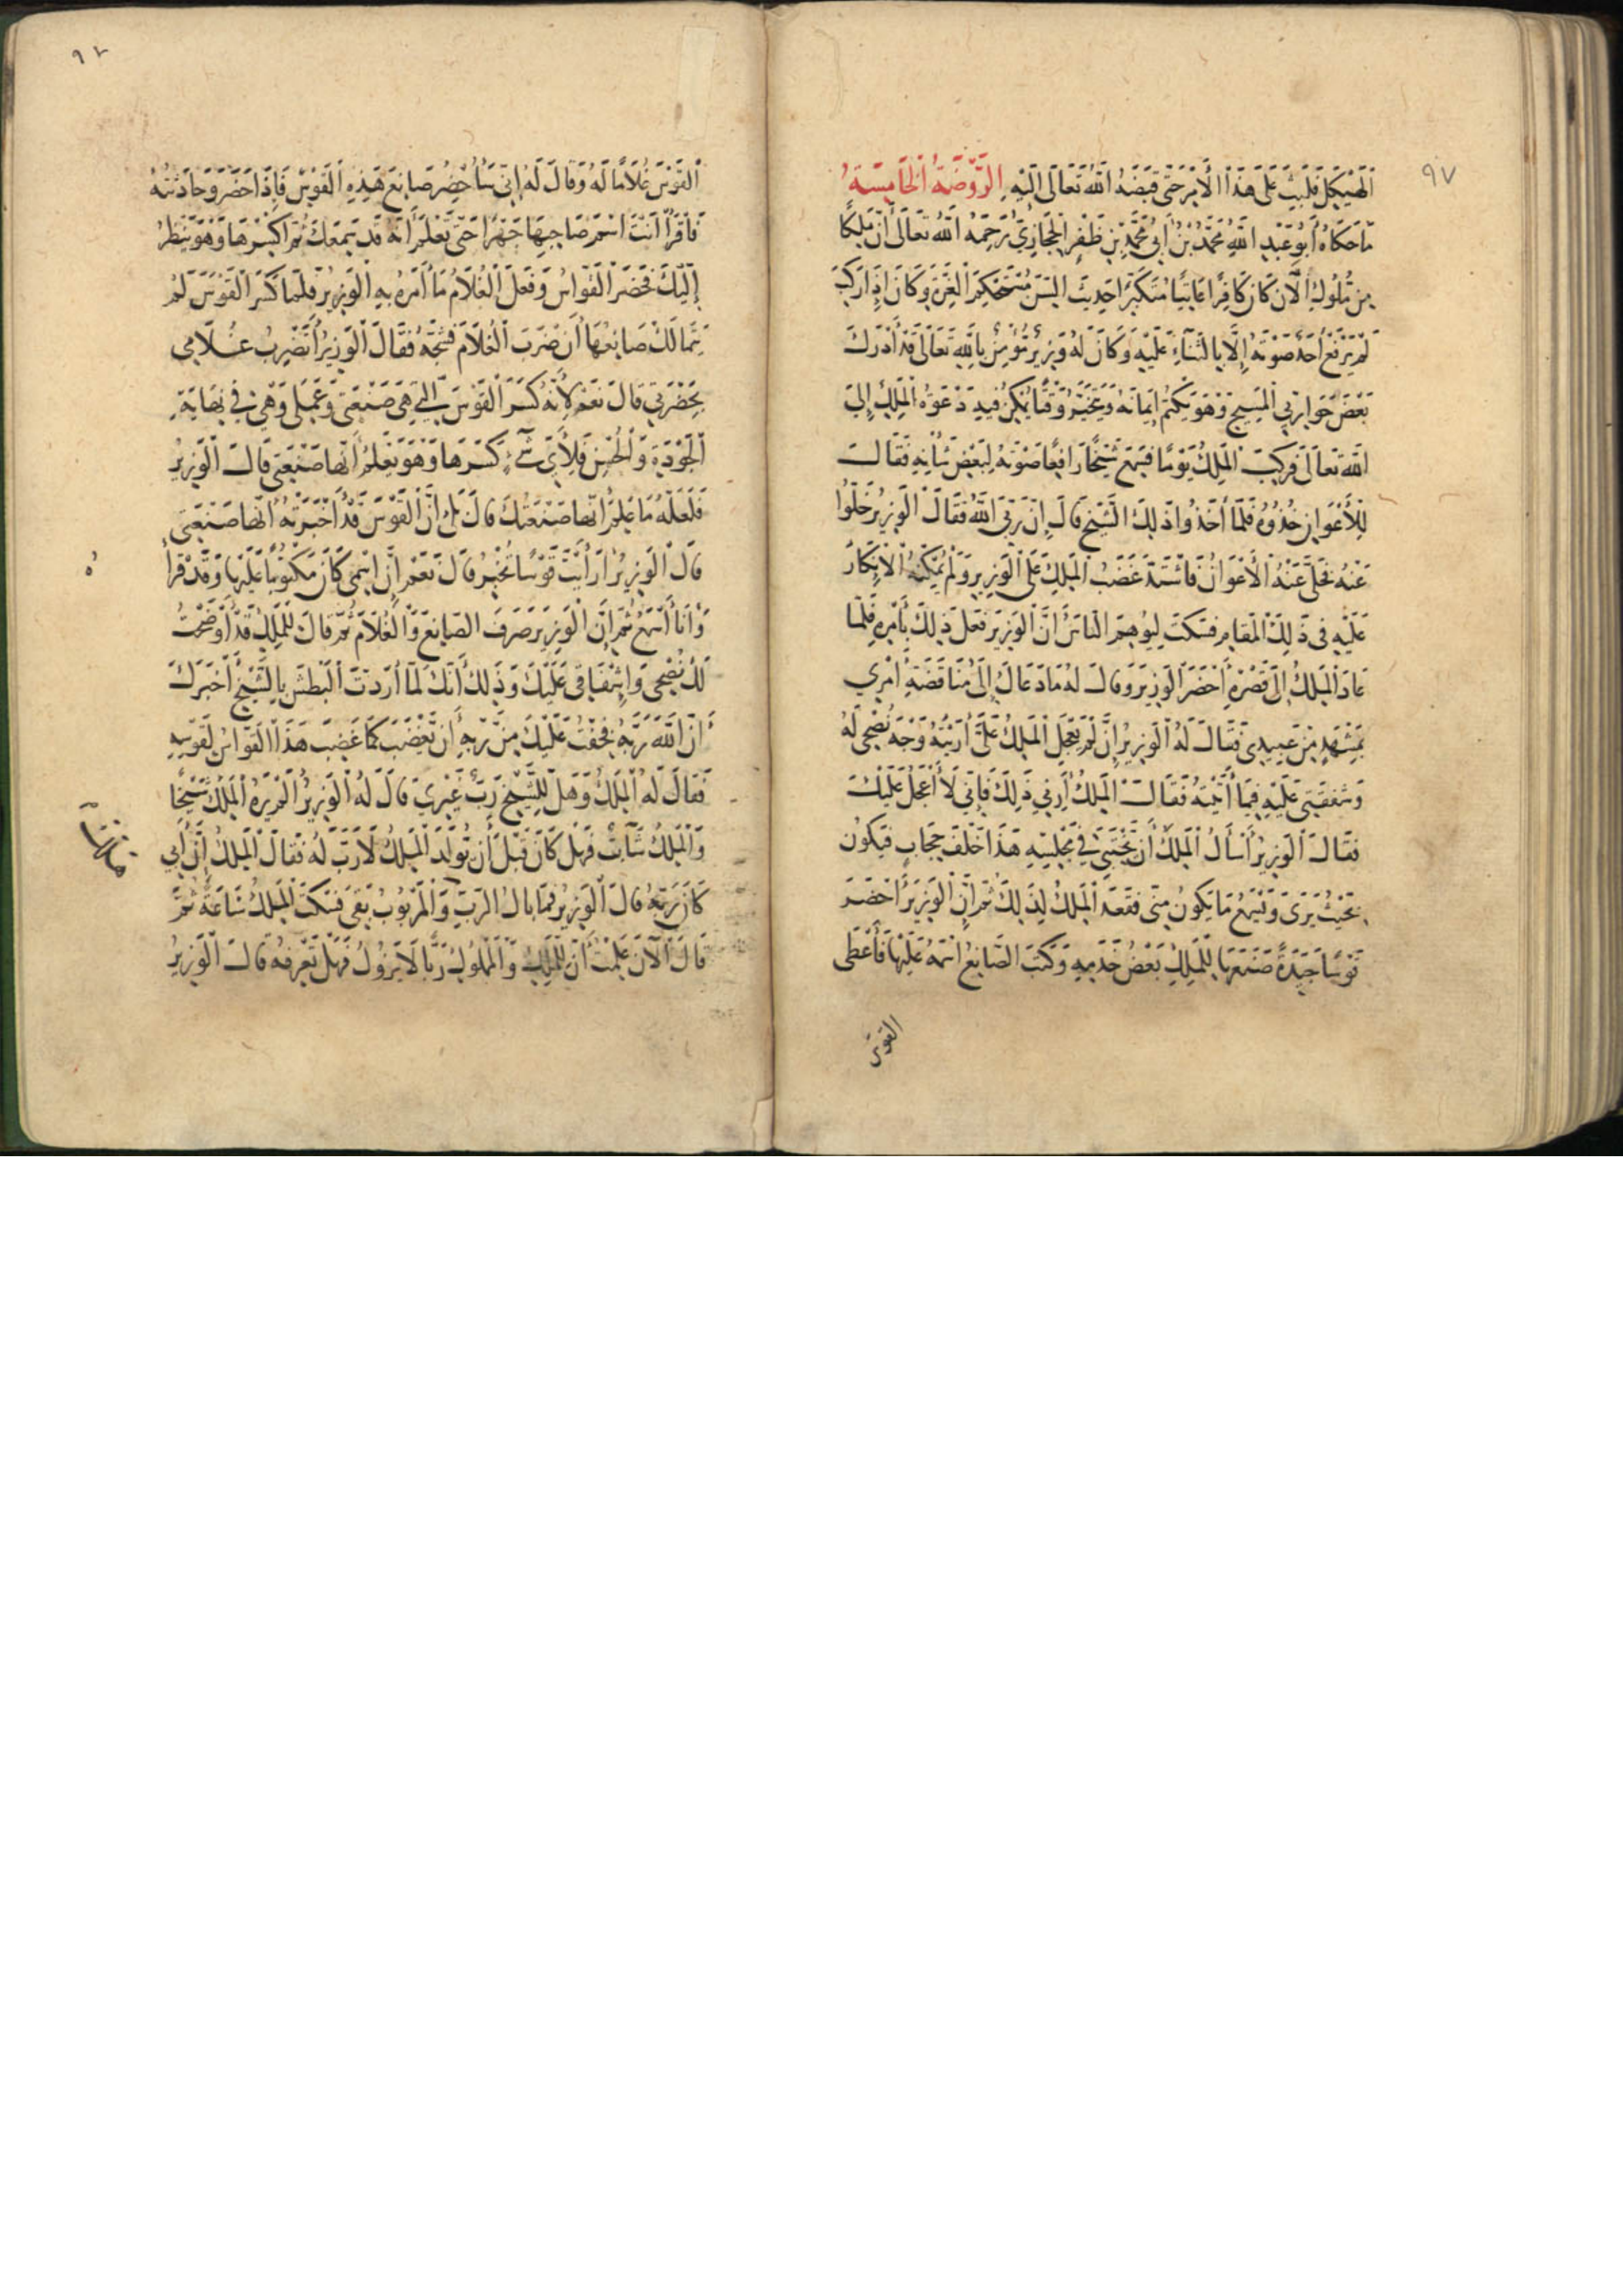 ٩٧
الهيكل فلبث على هذا الأمر حتى قبضه الله تعالى اليه الروضة الخامسة
ما حكاه أبو عبد الله محمد بن أبي محمد بن ظفر الحجازي رحمه الله تعالى أن ملكا
من ملوك الان كان كافرا عاتيا متكبرا حديث السن مستحكم الغرة وكان إذا ركب
لم يرفع أحد صوته إلا بالثناء عليه وكان له وزير يؤمن بالله تعالى قد أدرك
بعض حواري المسيح وهو يكتم ايمانه ويتخير وقتا يمكن فيه دعوة الملك إلى
الله تعالى فركب الملك يوما فسمع شيخا رافعا صوته لبعض شأنه فقال
للأعوان خذوه فلما أخذوا ذلك الشيخ قال إن ربي الله فقال الوزير خلوا
عنه فخلى عنه الأعوان فاشتد غضب الملك على الوزير ولم يمكنه الانكار
عليه في ذلك المقام فسكت ليوهم الناس أن الوزير فعل ذلك بأمره فلما
عاد الملك الى قصره أحضر الوزير وقال له ما دعاك إلى مناقضة أمري
بمشهد من عبيدي فقال له الوزير إن لم يعجل الملك علي أريته وجه نصحي له
وشفقتي عليه فيما أتيته فقال الملك أرني ذلك فإني لا أعجل عليك
فقال الوزير أسأل الملك أن يختبئ في مجلسه هذا خلف حجاب فيكون
بحيث يرى ويسمع ما يكون مني فقعد الملك لذلك ثم إن الوزير أحضر
قوسا جيدة صنعها للملك بعض خدمه وكتب الصانع اسمه عليها فأعطى
القوس
القوس غلاما له وقال له إني سأحضر صانع هذه القوس فإذا حضر وحادثته
فاقرأ أنت اسم صاحبها جهرا حتى تعلم أنه قد سمعك ثم اكسرها وهو ينظر
إليك فحضر القواس وفعل الغلام ما أمره به الوزير فلما كسر القوس لم
يتمالك صانعها أن ضرب الغلام فشجه فقال الوزير أتضرب غلامي
بحضرتي قال نعم لأنه كسر القوس التي هي صنعتي وعملي وهي في نهاية
الجودة والحسن فلأي شيء كسرها وهو يعلم أنها صنعتي قال الوزير
فلعله ما علم أنها صنعتك قال بلى إن القوس قد أخبرته أنها صنعتي
قال الوزير أرأيت قوسا تخبر قال نعم إن اسمي كان مكتوبا عليها وقد قرأ
ه
وأنا أسمع ثم إن الوزير صرف الصانع والغلام ثم قال للملك قد أوضحت
لك نصحي وإشفاقي عليك وذلك أنك لما أردت البطش بالشيخ أخبرك
أن الله ربه فخفت عليك من ربه أن يغضب كما غضب هذا القواس لقوسه
فقال له الملك وهل للشيخ رب غيري قال له الوزير ألم يره الملك شيخا
والملك شاب فهل كان قبل أن يولد الملك لا رب له فقال الملك إن أبي
كان ربه قال الوزير فما بال الرب والمربوب بقي فسكت الملك ساعة ثم
قال الآن علمت أن للملك والملوك ربا لا يزول فهل تعرفه قال الوزير